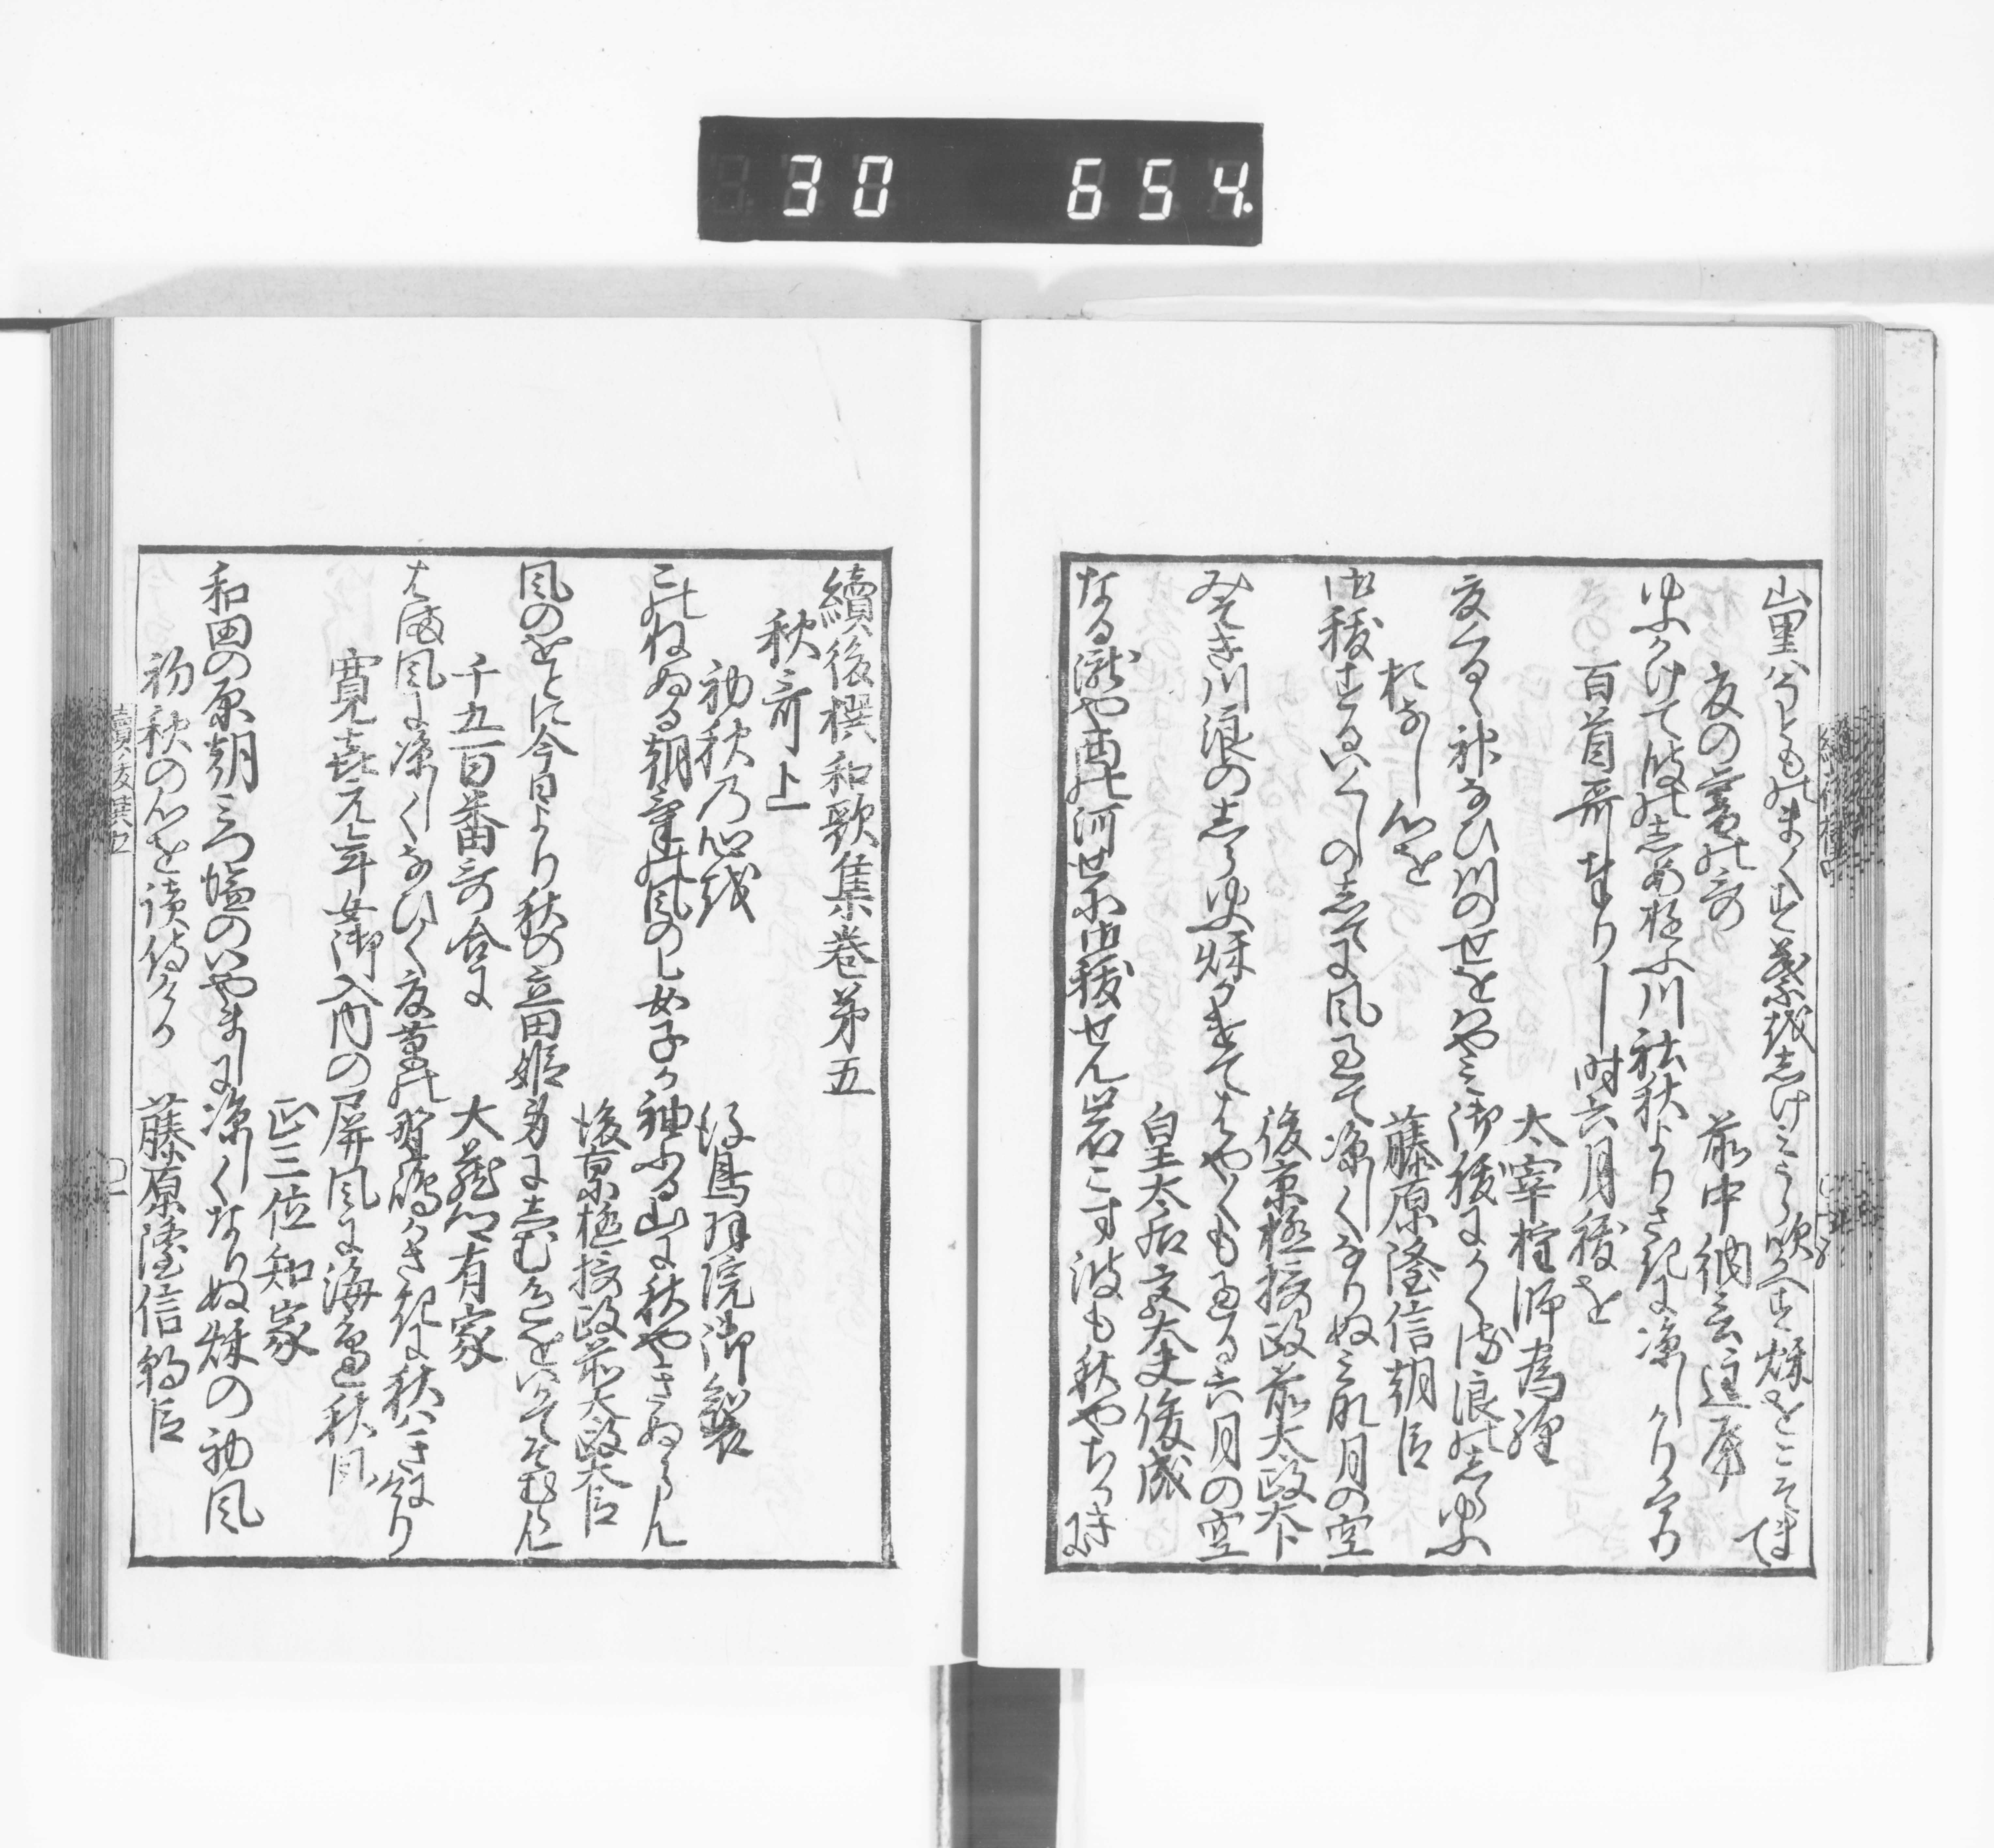 30 654.
夏の暮の哥
前中納言定家
ゆふかけて
川社秋よりさきに涼しかりけり
百首哥たてまつりし時六月祓を
太宰権帥為経
夏くるゝ神なひ川のせをはやみ御祓にかくる浪のしらゆふ
おなし心を
藤原隆信朝臣
御祓する
のしてに風みえて涼しくなりぬみな月の空
後京極摂政前太政大臣
みそき川浪のしらゆふ秋かけてはやくもすくる六月の空
皇太后宮大夫俊成
なる瀧や西の河せに御祓せん岩こす波も秋やちかき
續後撰和歌集巻第五
秋哥上
初秋の心を
後鳥羽院御製
この
ぬる朝
風のをとめ子か袖ふる山に秋やきぬらん
後京極摂政前太政大臣
風のをとに今日より秋の立田姫身にしむ色をいかてそむらん
千五百番哥合に
大蔵卿有家
はま風に涼しくなひく夏草の野嶋かさきに秋はきにけり
寛喜元年女御入内の屏風に海邊秋風
正三位知家
和田の原朝みつ塩のいやましに涼しくなりぬ秋の初風
初秋の心を読侍ける
藤原隆信朝臣